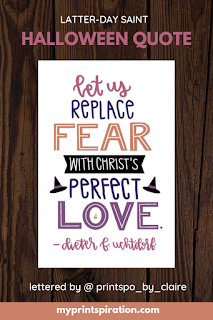 LATTER-DAY SAINT
HALLOWEEN QUOTE
let us
REPLACE
FEAR
WITH CHRIST'S
PERFECT
LOVE.
- dieter f uchtdorf
lettered by @ printspo_by_claire
myprintspiration.com